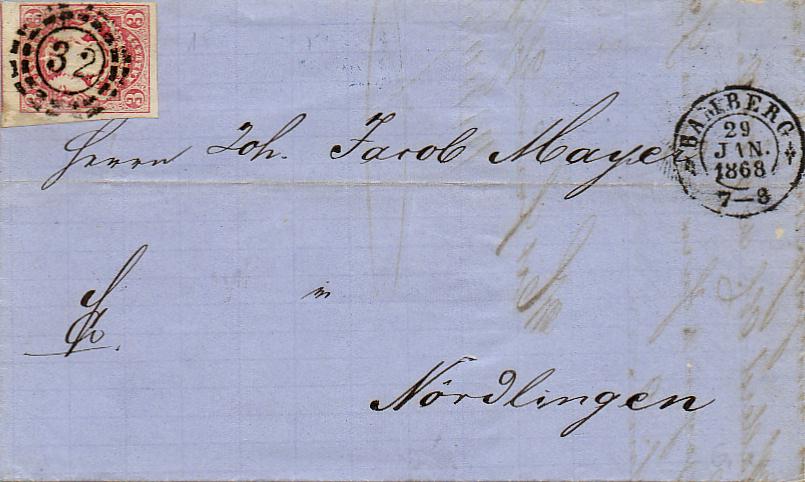 32
BAMBERG
29
JAN.
1868
7-8
Herrn Joh. Jacob Mayer
in
Nördlingen